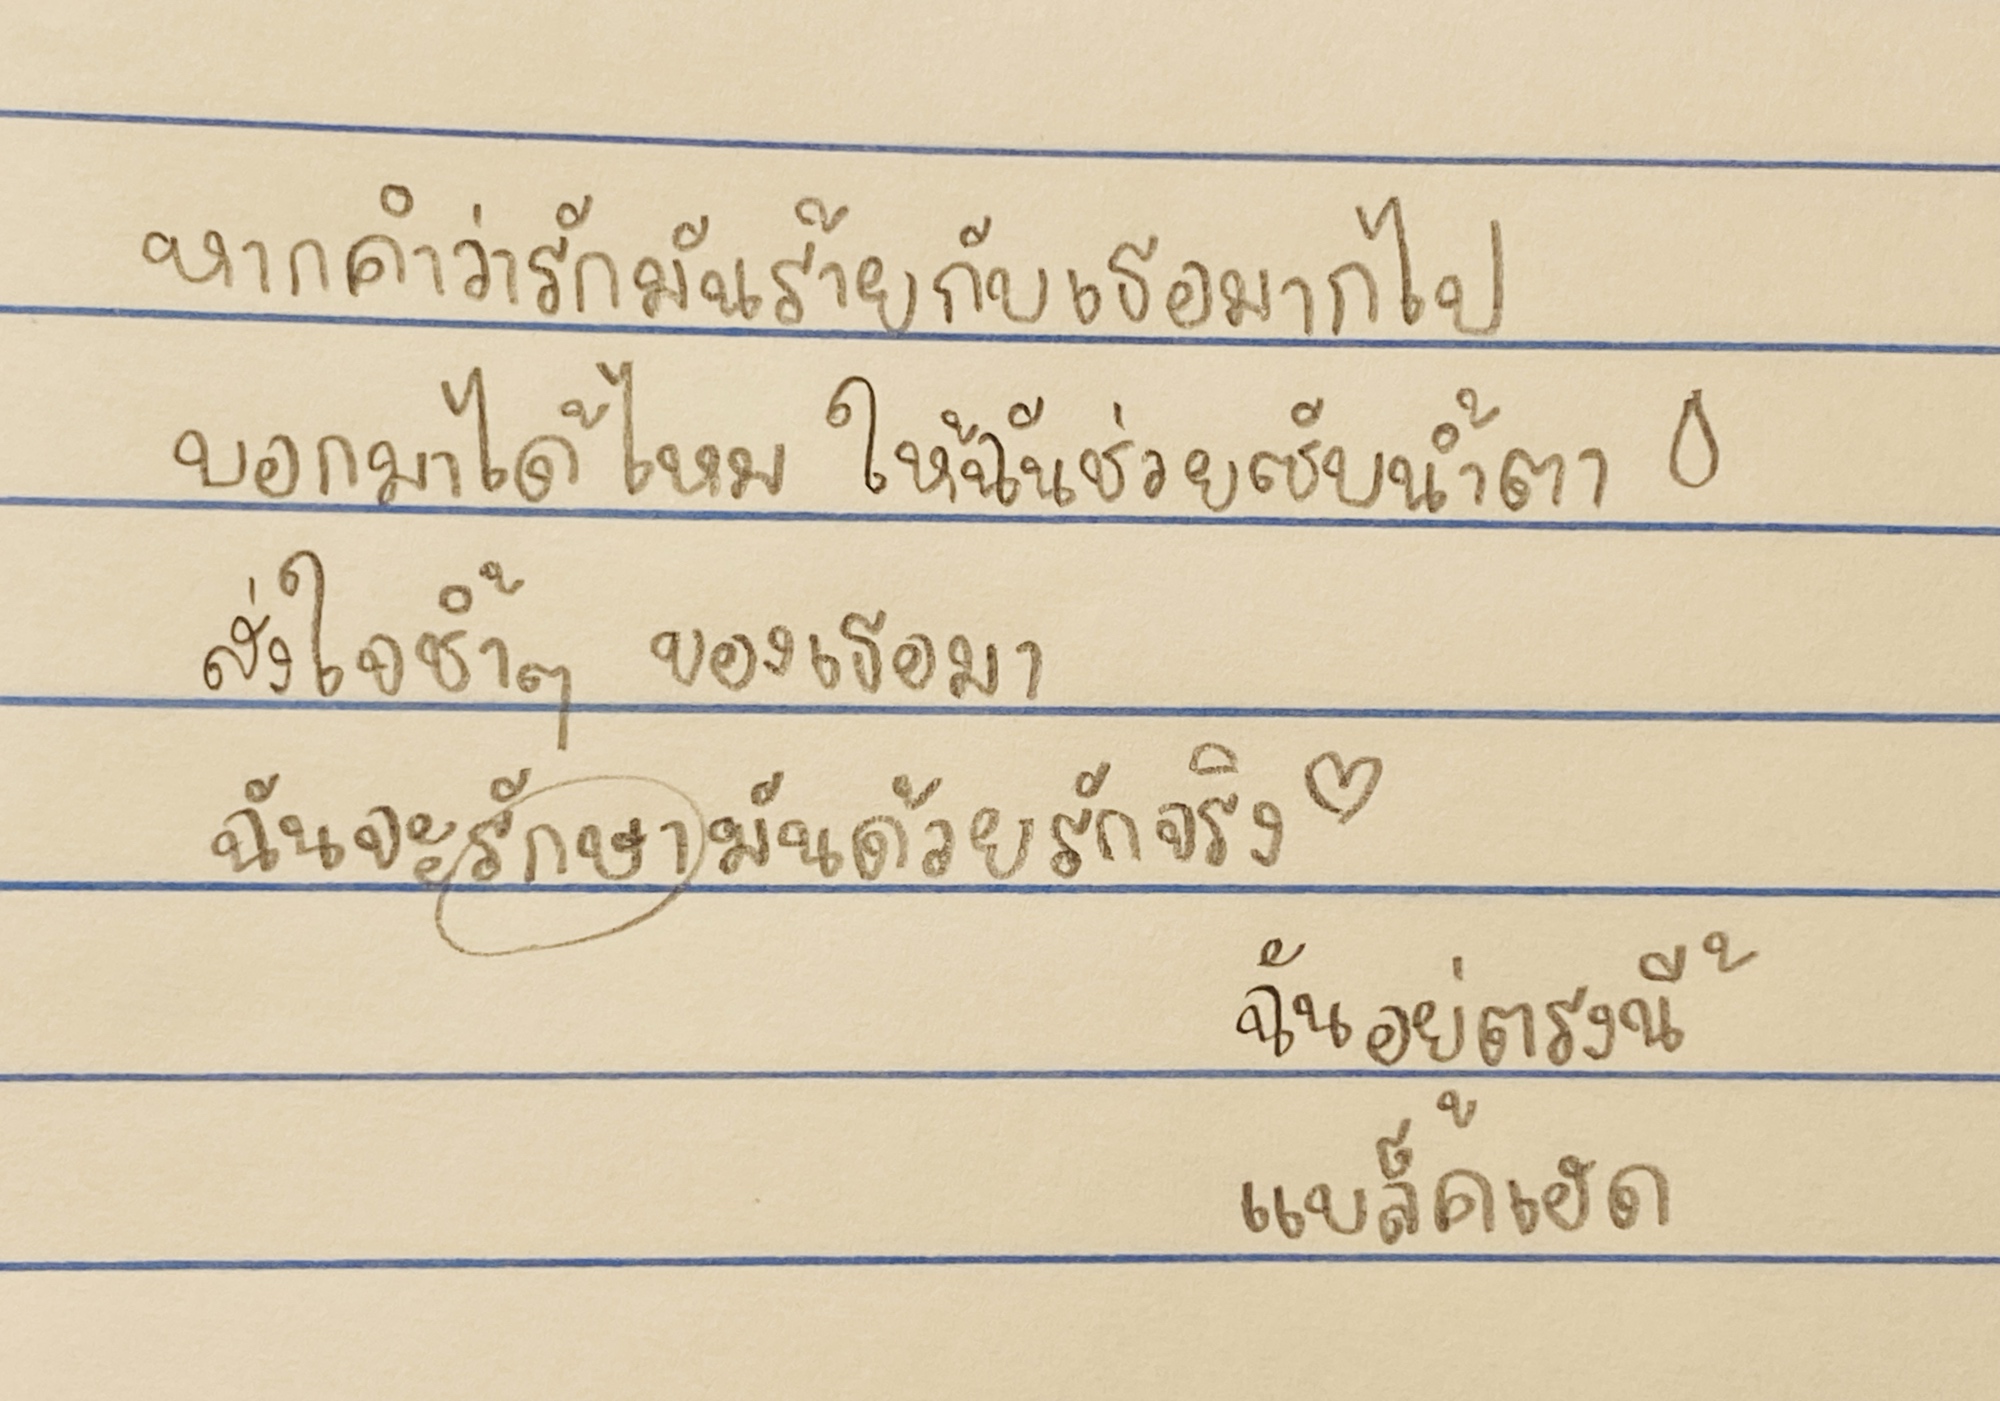 หากคำว่ารักมันร้ายกับเธอมากไป
บอกมาได้ไหม ให้ฉันช่วยซับน้ำตา
ส่งใจช้ำๆ ของเธอมา
ฉันจะรักษามันด้วยรักจริง
ฉันอยู่ตรงนี้
แบล็คเฮด